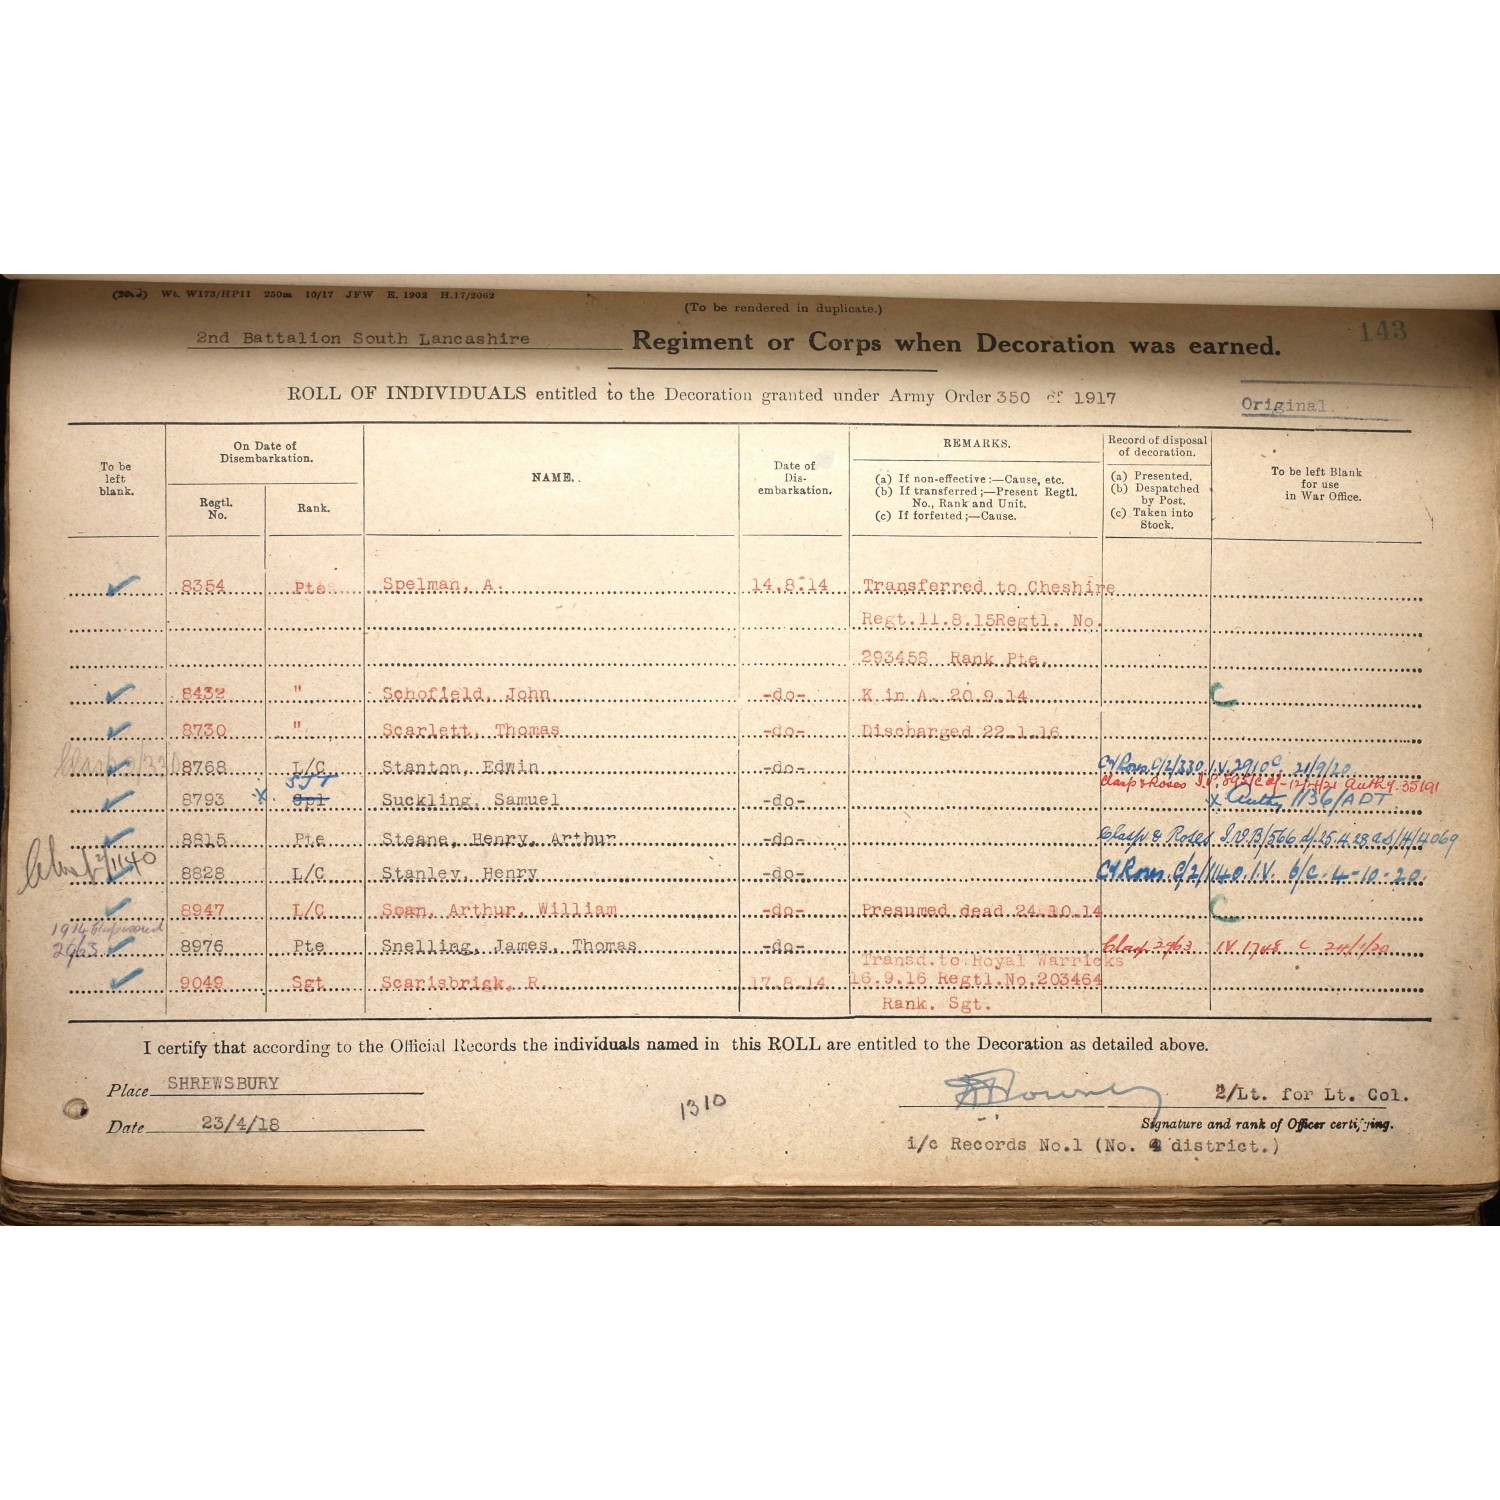 Wt. W173/HP11 250m 10/17 JFW E. 1902 H.17/2062
(To be rendered in duplicate.)
143
2nd Battalion South Lancashire Regiment or Corps when Decoration was earned.
ROLL OF INDIVIDUALS entitled to the Decoration granted under Army Order 350 of 1917
Original.
To be left blank.
On Date of Disembarkation.
Regtl. No.
Rank.
NAME.
Date of Dis-embarkation.
REMARKS.
(a) If non-effective :—Cause, etc.
(b) If transferred ;—Present Regtl. No., Rank and Unit.
(c) If forfeited ;—Cause.
Record of disposal of decoration.
(a) Presented.
(b) Despatched by Post.
(c) Taken into Stock.
To be left Blank for use in War Office.
8354 Pte Spelman, A. 14.8.14 Transferred to Cheshire
Regt.11.8.15Regtl. No.
293458 Rank Pte.
8432 " Schofield, John -do- K in A. 20.9.14 C
8730 " Scarlett, Thomas -do- Discharged 22.1.16
8768 L/C Stanton, Edwin -do- C/2/330 I.V. 2910 C. 21/9/20
SJT
Clasp & Roses I.V. 895/C d/-12/4/21 Authy. 35191
8793 x Cpl Suckling, Samuel -do- x Authy 1/36/ADT
8815 Pte Steane, Henry, Arthur -do- Clasp & Roses I.V.B/566 d/25.4.28
8828 L/C Stanley, Henry -do- C/2/1140 I.V. 6/C. 4-10-20.
8947 L/C Soan, Arthur, William -do- Presumed dead 24.10.14 C
2963 8976 Pte Snelling, James, Thomas -do- Clasp 2963 I.V. 1748 C 24/1/20
Transd.to Royal Warricks
9049 Sgt Scarisbrick, R. 17.8.14 16.9.16 Regtl.No.203464
Rank. Sgt.
I certify that according to the Official Records the individuals named in this ROLL are entitled to the Decoration as detailed above.
Place SHREWSBURY
1310
2/Lt. for Lt. Col.
Date 23/4/18
Signature and rank of Officer certifying.
i/c Records No.1 (No. 4 district.)